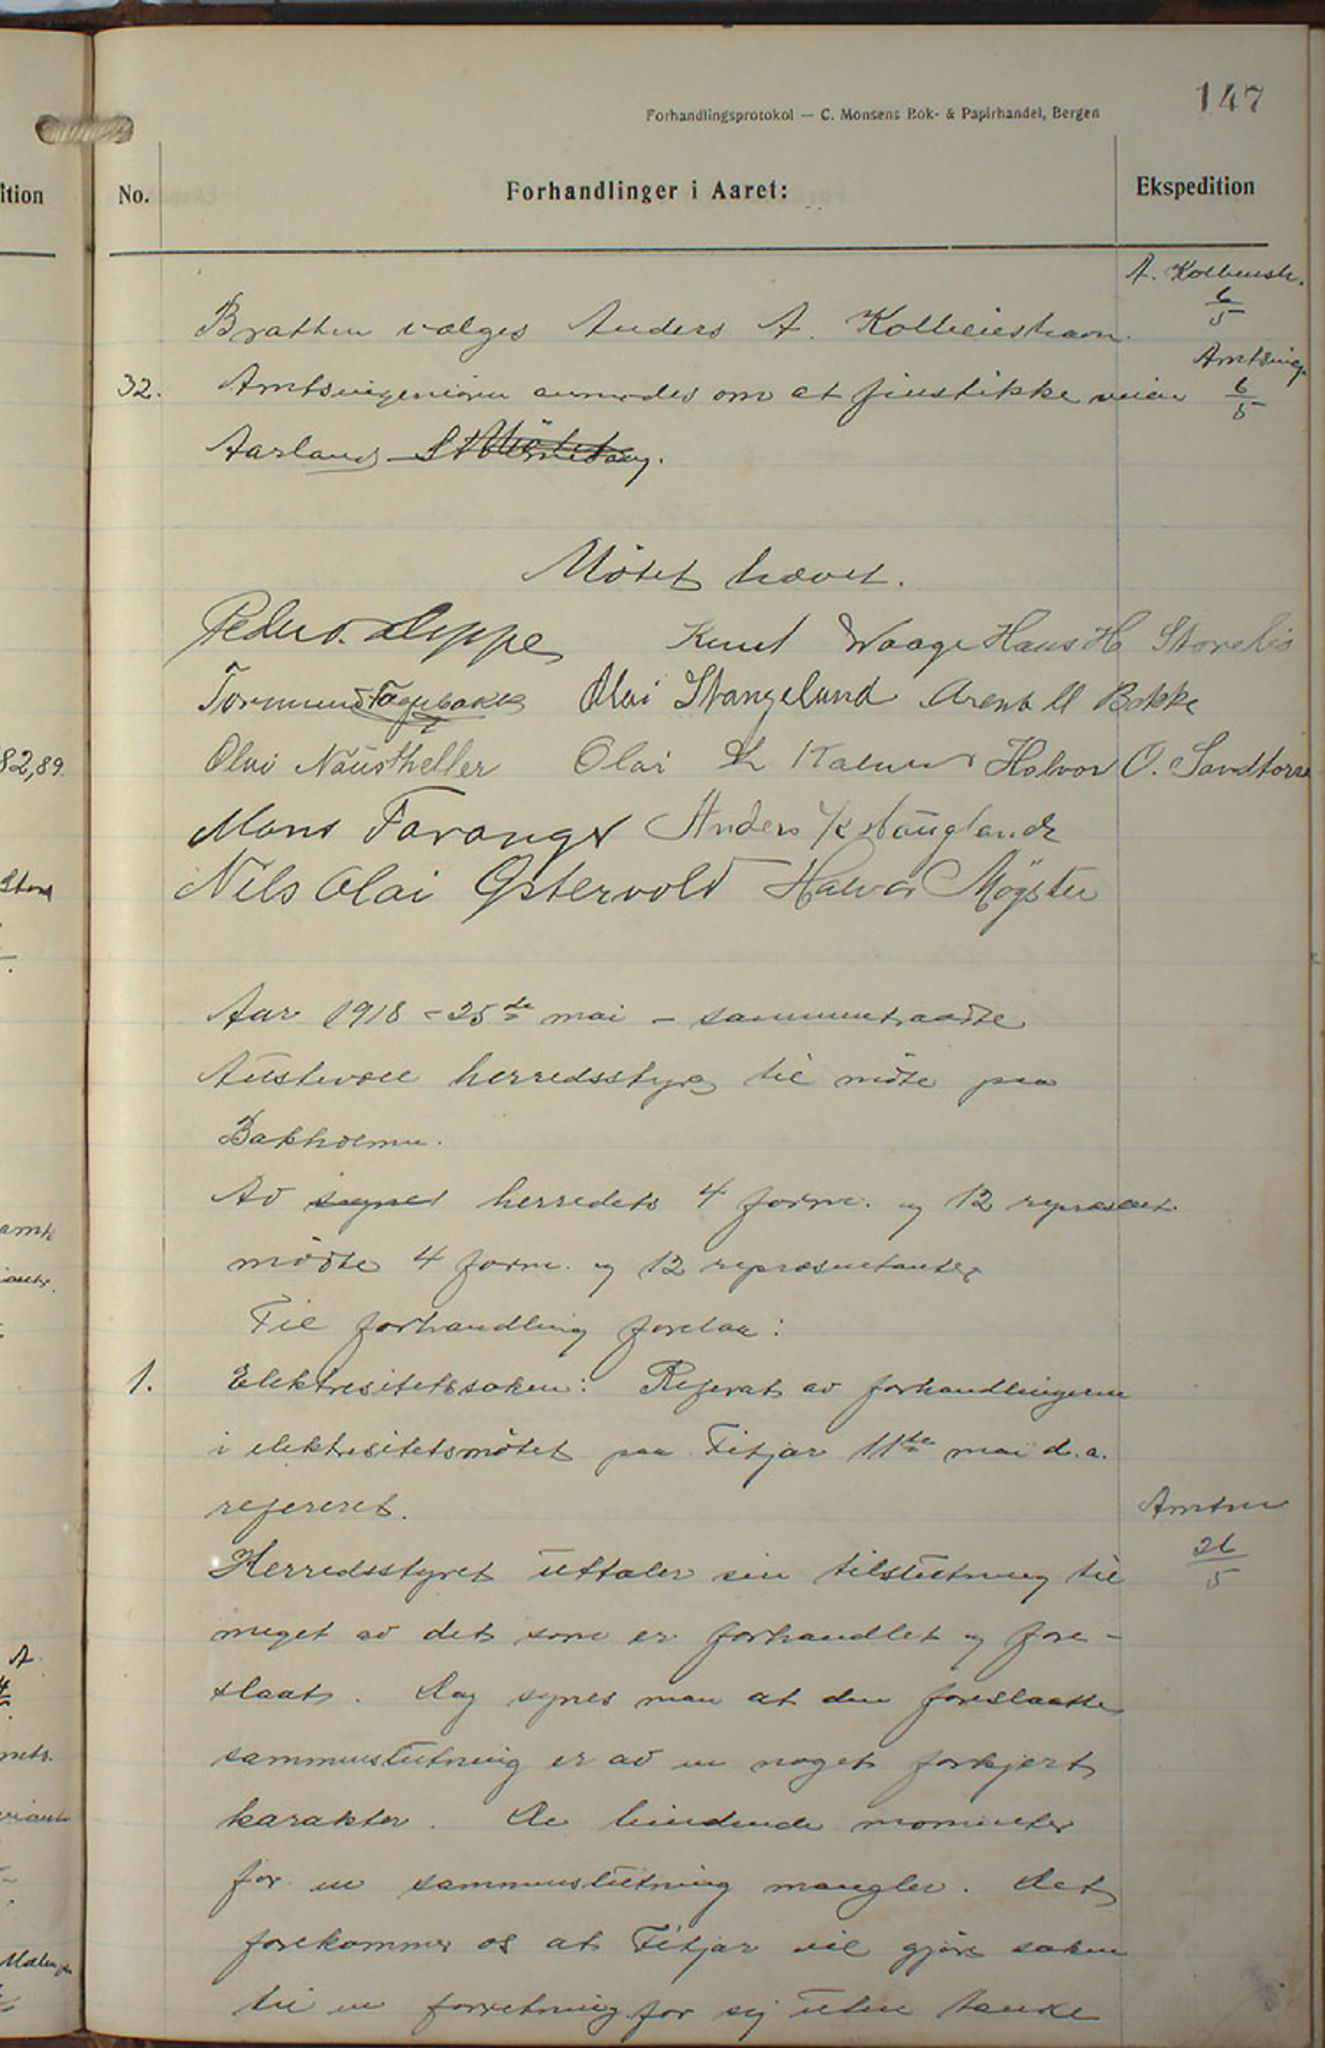 147
Forhandlingsprotokol — C. Monsens Bok- & Papirhandel, Bergen
ition
No.
Forhandlinger i Aaret:
Ekspedition
A. Kolbensh.
6/5
Bratten vælges Anders A. Kolbeinshavn.
Amtsing.
6/5
32. Amtsingeniøren anmodes om at finstikke veien
Aarland
Møtet hævet.
Peder O. Drppe Knut Waage Hans H Storebø
Tormund Olai Stangeland Arent M Bakke
Olai Nøustheller Olai Halvor O. Sandtorv
82,89.
Mons Faranger Anders K Haugland
Nils Olai Østervold Halvor Møgster
Aar 1918 - 25de mai - sammentraadte
Austevoll herredsstyre til møte paa
Bakholmen.
Av herredets 4 form. og 12 repræsent.
mødte 4 form. og 12 repræsentanter
Til forhandling forelaa:
1. Elektresitetssaken: Referat av forhandlingerne
i elektresitetsmøtet paa Fitjar 11te mai d.a.
refereret.
Amtm
26/5
Herredsstyret uttaler sin tilslutning til
meget av det som er forhandlet og fore-
slaat. Dog synes man at den foreslaatte
sammenslutning er av en noget forkjert
karakter. De bindende momenter
for en sammenslutning mangler. Det
forekommer os at Fitjar vil gjøre saken
til en forretning for sig uten tanke